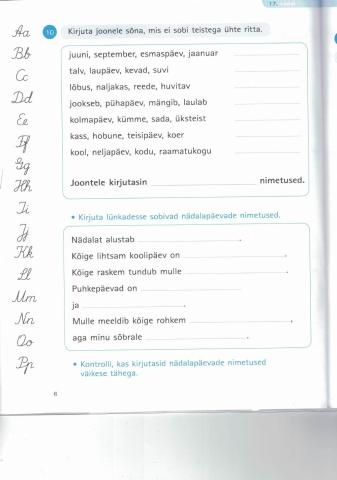 17.
Aa
Bb
Cc
Dd
Ee
Ff
Gg
Hh
Ii
Jj
Kk
Ll
Mm
Nn
Oo
Pp
10 Kirjuta joonele sõna, mis ei sobi teistega ühte ritta.
juuni, september, esmaspäev, jaanuar
talv, laupäev, kevad, suvi
lõbus, naljakas, reede, huvitav
jookseb, pühapäev, mängib, laulab
kolmapäev, kümme, sada, üksteist
kass, hobune, teisipäev, koer
kool, neljapäev, kodu, raamatukogu
Joontele kirjutasin nimetused.
• Kirjuta lünkadesse sobivad nädalapäevade nimetused.
Nädalat alustab .
Kõige lihtsam koolipäev on .
Kõige raskem tundub mulle .
Puhkepäevad on
ja .
Mulle meeldib kõige rohkem ,
aga minu sõbrale .
• Kontrolli, kas kirjutasid nädalapäevade nimetused
väikese tähega.
6